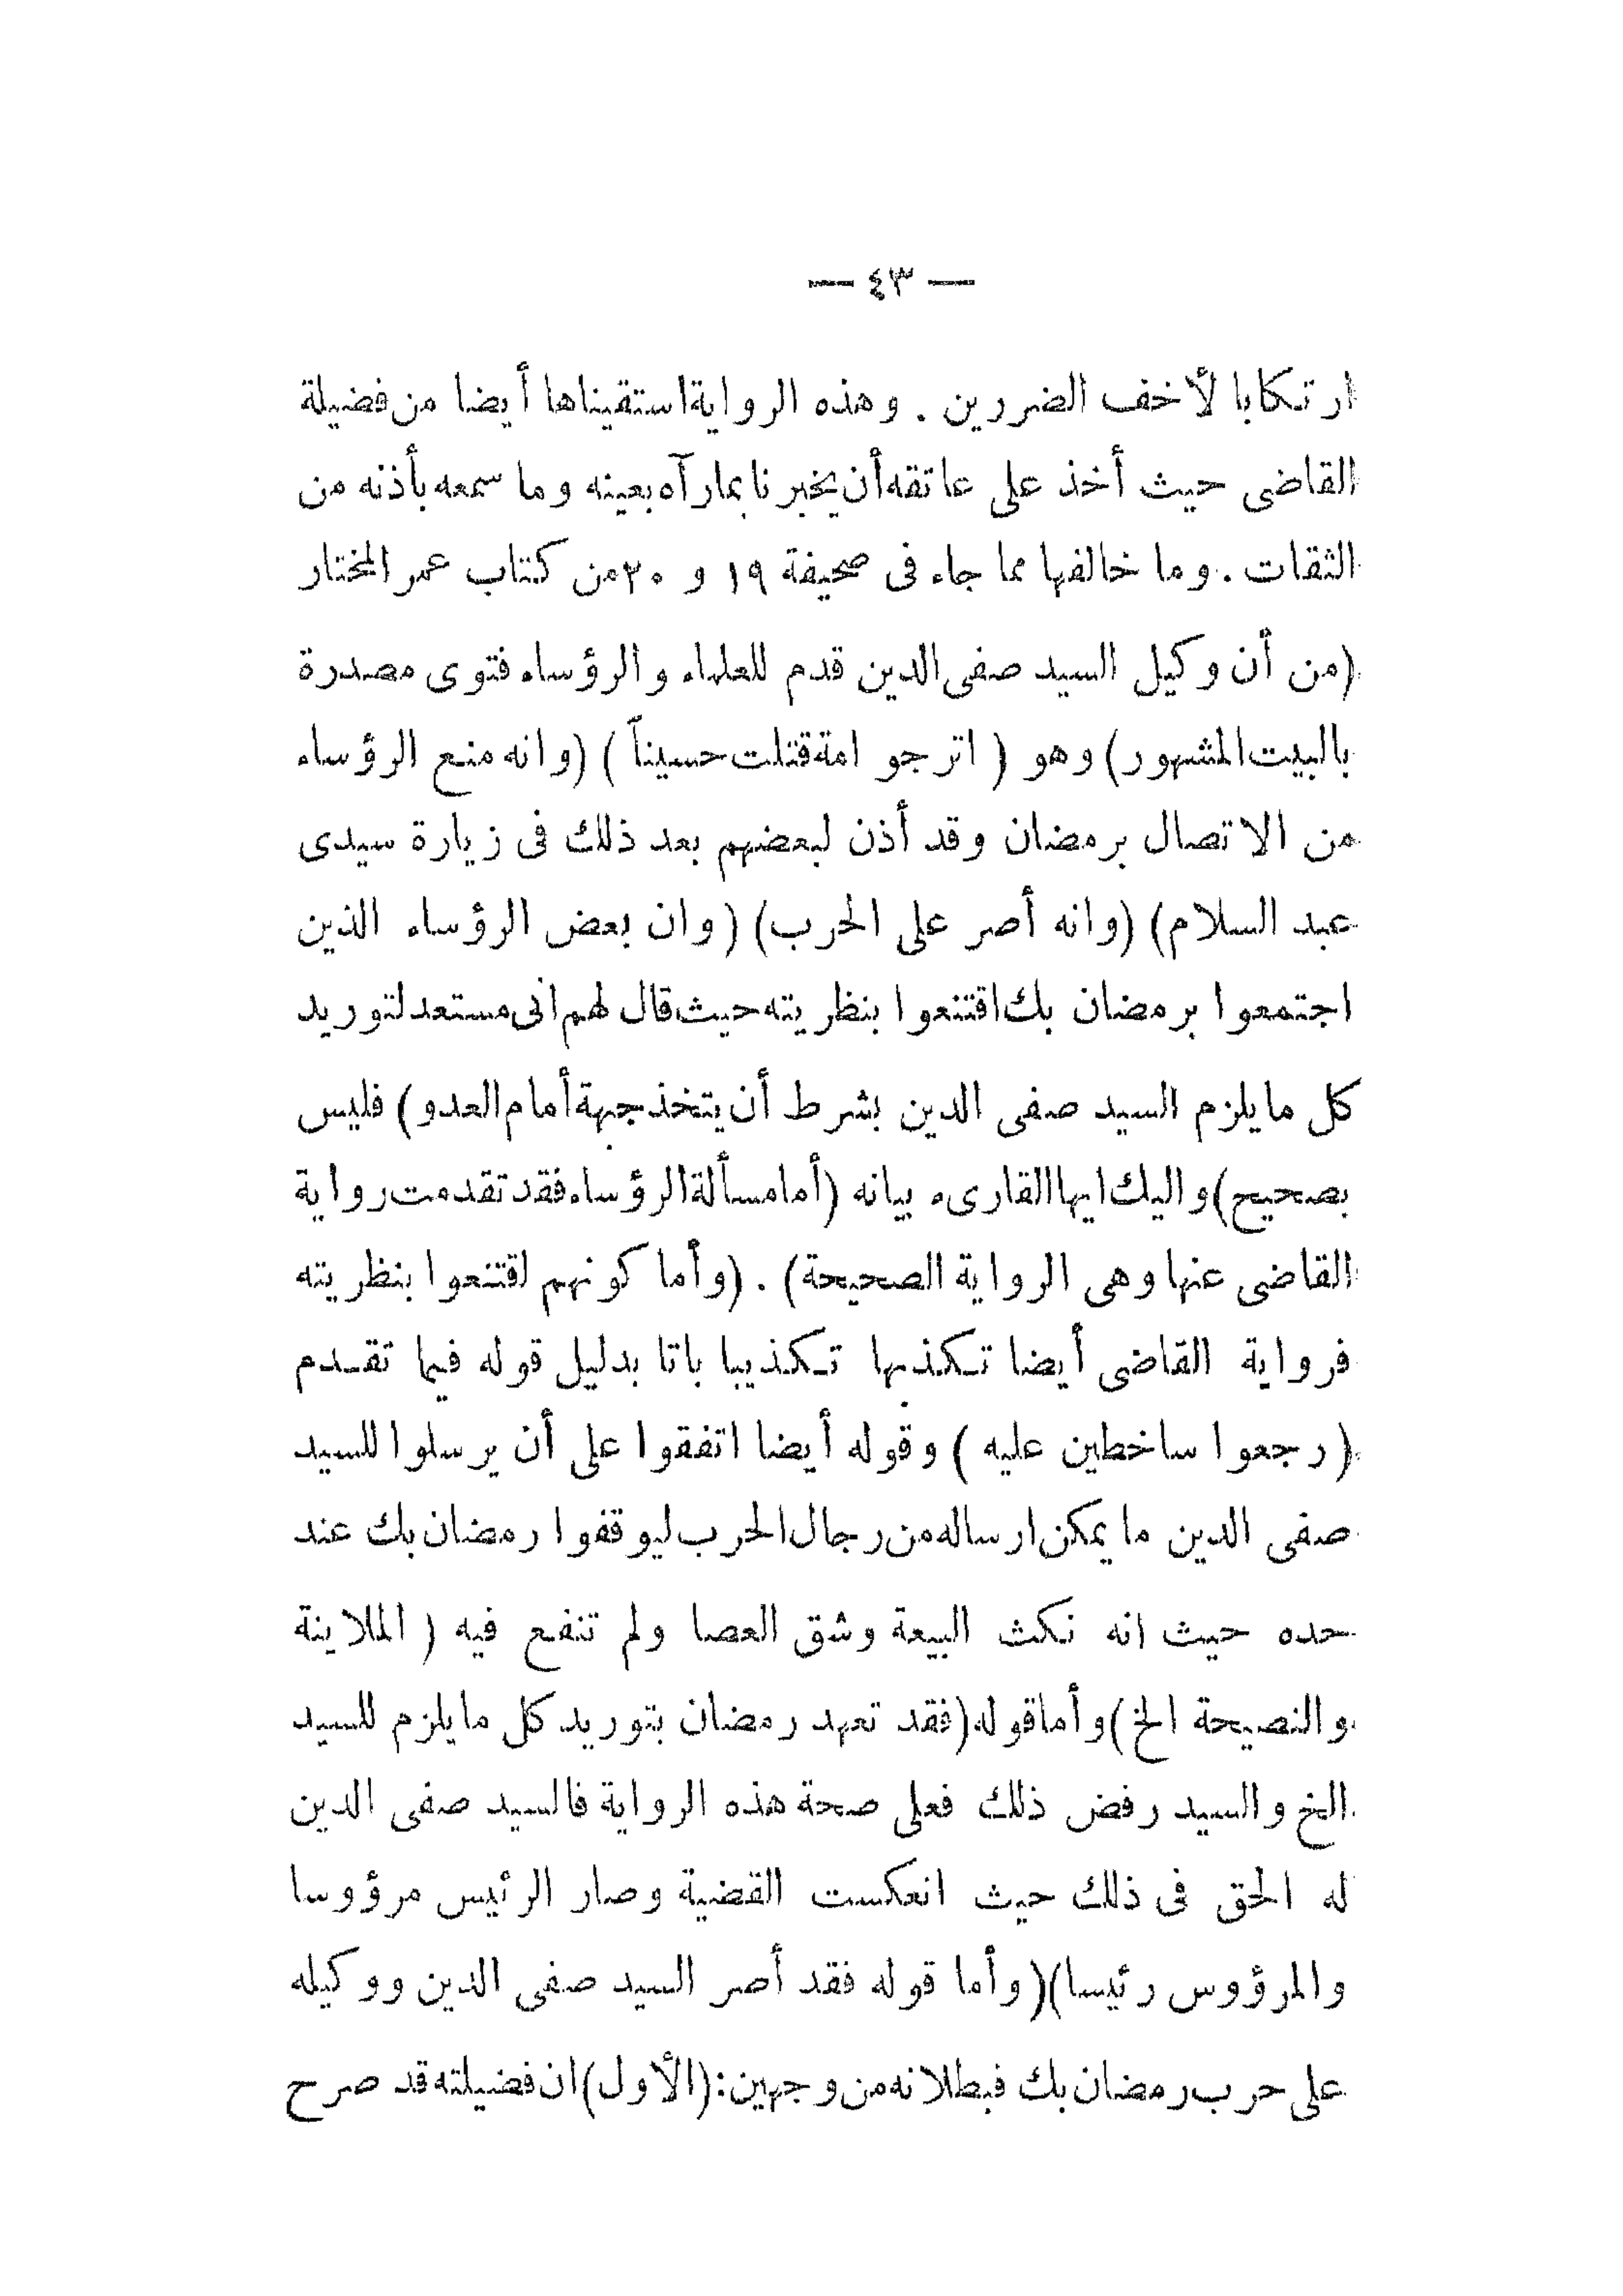 — ٤٣ —
ارتكابا لأخف الضررين . وهذه الرواية استقيناها أيضا من فضيلة
القاضى حيث أخذ على عاتقه أن يخبرنا بمارآه بعينه وما سمعه بأذنه من
الثقات . وما خالفها مما جاء فى صحيفة ١٩ و ٢٠ من كتاب عمر المختار
(من أن وكيل السيد صفى الدين قدم للعلماء والرؤساء فتوى مصدرة
بالبيت المشهور) وهو ( اترجو امة قتلت حسيناً ) (وانه منع الرؤساء
من الاتصال برمضان وقد أذن لبعضهم بعد ذلك فى زيارة سيدى
عبد السلام) (وانه أصر على الحرب) (وان بعض الرؤساء الذين
اجتمعوا برمضان بك اقتنعوا بنظريته حيث قال لهم انى مستعد لتوريد
كل مايلزم السيد صفى الدين بشرط أن يتخذ جبهة أمام العدو) فليس
بصحيح) واليك ايها القارىء بيانه (أما مسألة الرؤساء فقد تقدمت رواية
القاضى عنها وهى الرواية الصحيحة) . (وأما كونهم اقتنعوا بنظريته
فرواية القاضى أيضا تكذبها تكذيبا باتا بدليل قوله فيما تقدم
( رجعوا ساخطين عليه ) وقوله أيضا اتفقوا على أن يرسلوا للسيد
صفى الدين ما يمكن ارساله من رجال الحرب ليوقفوا رمضان بك عند
حده حيث انه نكث البيعة وشق العصا ولم تنفع فيه ( الملاينة
والنصيحة الخ) وأما قوله (فقد تعهد رمضان بتوريد كل مايلزم للسيد
الخ والسيد رفض ذلك فعلى صحة هذه الرواية فالسيد صفى الدين
له الحق فى ذلك حيث انعكست القضية وصار الرئيس مرؤوسا
والمرؤوس رئيسا)(وأما قوله فقد أصر السيد صفى الدين ووكيله
على حرب رمضان بك فبطلانه من وجهين: (الأول) ان فضيلته قد صرح